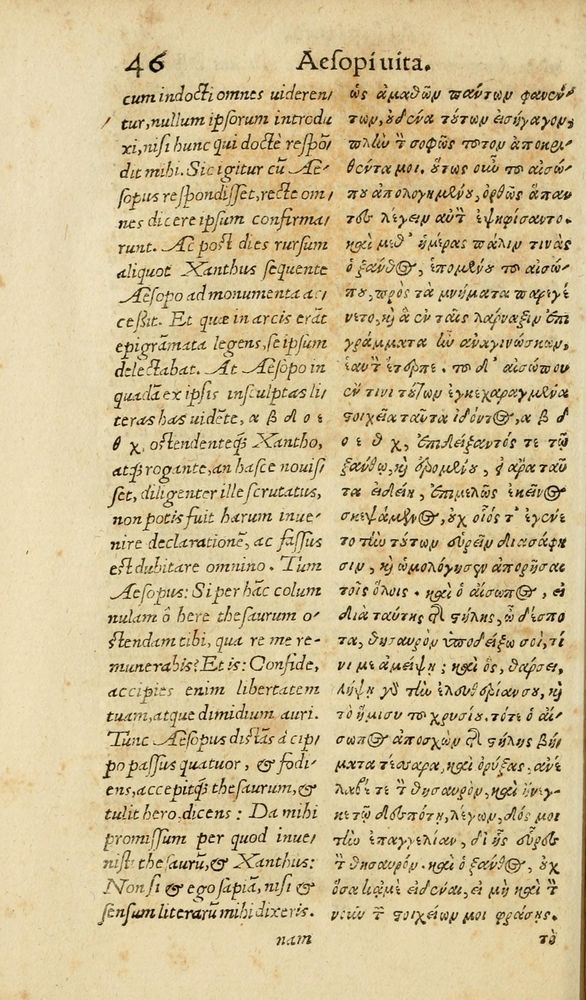 46 Aesopi uita.
cum indocti omnes uideren
tur, nullum ipsorum introdu
xi, nisi hunc qui doctè respõ
dit mihi. Sic igitur cũ Ae-
sopus respondisset, recte om
nes dicere ipsum confirma
runt. Ac post dies rursum
aliquot Xanthus sequente
Aesopo ad monumenta ac
cessit. Et quæ in arcis erãt
epigrãmata legens, se ipsum
delectabat. At Aesopo in
quadã ex ipsis insculptas li
teras has uidẽte, α β δ ο ε
θ χ, ostendenteq́; Xantho,
atq; rogante, an hasce nouis
set, diligenter ille scrutatus,
non potis fuit harum inue
nire declarationẽ, ac fassus
est dubitare omnino. Tum
Aesopus: Si per hãc colum
nulam ô here thesaurum o-
stendam tibi, qua re me re-
munerabis? Et is: Confide,
accipies enim libertatem
tuam, atque dimidium auri.
Tunc Aesopus distãs à cip
po passus quatuor, & fodi
ens, accepitq́; thesaurum, &
tulit hero, dicens: Da mihi
promissum per quod inue
nisti thesaurũ, & Xanthus:
Non si & ego sapiã, nisi &
sensum literarũ mihi dixeris.
nam
ὡς ἀμαθῶν πάντων φανέν
των, οὐδένα τούτων εἰσήγαγον,
πλὴν τ̃ σοφῶς τοῦτον ἀποκρι
θέντα μοι. οὕτως οὖν το αἰσώ
που ἀπολογημένου, ὀρθῶς ἅπαν
τες λέγειν αὐτ̀ ἐψηφίσαντο.
καὶ μεθ' ἡμέρας πάλιν τινὰς
ὁ ξάνθος, ἑπομένου το αἰσώ
που, πρὸς τὰ μνήματα παρεγέ
νετο, κ̀ ἃ ἐν ταῖς λάρναξιν ἐπι
γράμματα ἦν ἀναγινώσκων,
ἑαυτ̀ ἔτερπε. το δ' αἰσώπου
ἔν τινι τούτων ἐγκεχαραγμένα
στοιχεῖα ταῦτα ἰδόντος, α β δ
ο ε θ χ, ἐπιδείξαντός τε τῷ
ξάνθῳ, κ̀ ἐρομένου, εἰ ἄρα ταῦ
τα εἰδείη, ἐπιμελῶς ἐκεῖνος
σκεψάμενος, οὐχ οἷός τ' ἐγένε
το τὴν τούτων εὑρεῖν διασάφη
σιν, κ̀ ὡμολόγησεν ἀπορῆσαι
τοῖς ὅλοις. καὶ ὁ αἴσωπος, εἰ
διὰ ταύτης τῆς στήλης, ὦ δέσπο
τα, θησαυρὸν ὑποδείξω σοι, τί
νι με ἀμείψῃ; καὶ ὅς, θάρσει,
λήψῃ γὰρ τὴν ἐλευθερίαν σου, κ̀
τὸ ἥμισυ το χρυσίου. τότε ὁ αἴ
σωπος ἀποσχὼν τῆς στήλης βή
ματα τέσσαρα, καὶ ὀρύξας, ἀνέ
λαβέ τε τ̀ θησαυρὸν, καὶ ἤνεγ
κε τῷ δεσπότῃ, λέγων, δός μοι
τὴν ἐπαγγελίαν, δι' ἧς εὗρες
τ̀ θησαυρόν. καὶ ὁ ξάνθος, οὐχ
εἰδέναι, εἰ μὴ καὶ τ̀
νοῦν τ̃ στοιχείων μοι φράσῃς.
τὸ